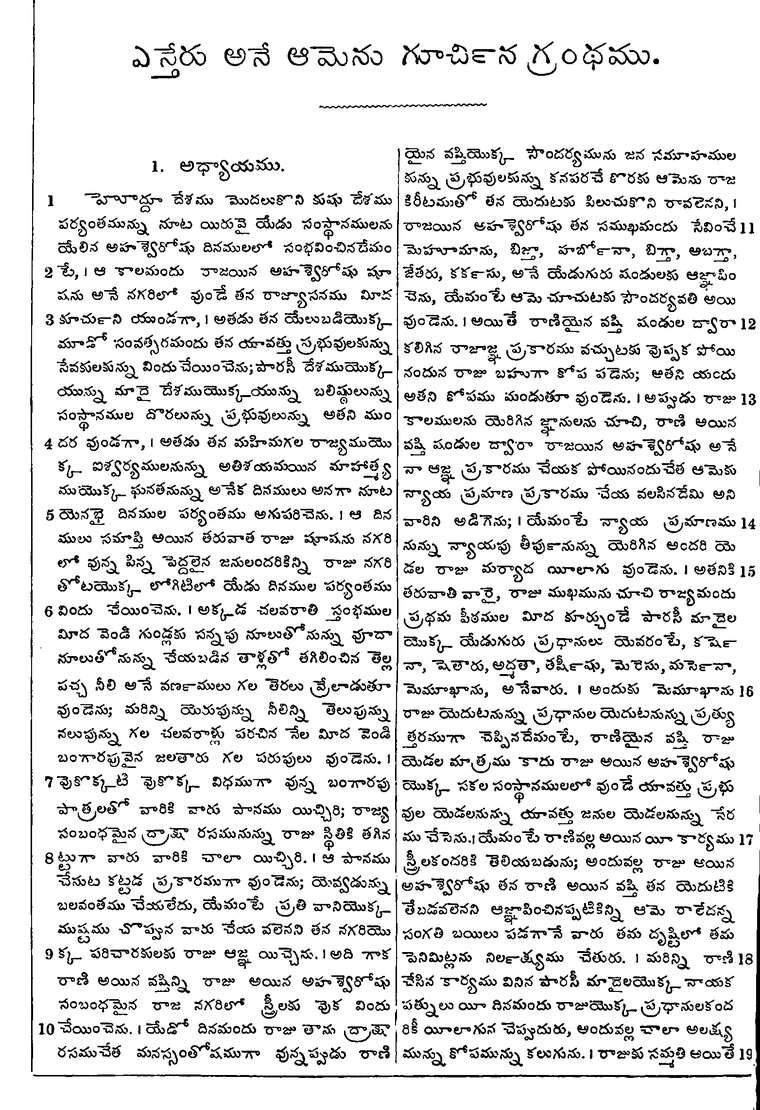 ఎస్తేరు అనే ఆమెను గూచిఁన గ్రంథము.
1. అధ్యాయము.
1 హెూద్దూ దేశము మొదలుకొని కుషు దేశము
పర్యంతమున్ను నూట యిరువై యేడు సంస్థానములను
యేలిన అహశ్వెరోషు దినములలో సంభవించినదేమం
2 టే, । ఆ కాలమందు రాజయిన అహశ్వెరోషు షూ
షను అనే నగరిలో వుండే తన రాజ్యాసనము మీద
3 కూచుఁని యుండగా, । అతడు తన యేలుబడియొక్క
మూడో సంవత్సరమందు తన యావత్తు ప్రభువులకున్ను
సేవకులకున్ను విందు చేయించెను; పారసీ దేశముయొక్క
యున్ను మాదై దేశముయొక్కయున్ను బలిష్ఠులున్ను
సంస్థానముల దొరలున్ను ప్రభువులున్ను అతని ముం
4 దర వుండగా, । అతడు తన మహిమగల రాజ్యముయొ
క్క ఐశ్వర్యములనున్ను అతిశయమయిన మాహాత్మ్య
ముయొక్క ఘనతనున్ను అనేక దినములు అనగా నూట
5 యెనభై దినముల పర్యంతము అగుపరిచెను. । ఆ దిన
ములు సమాప్తి అయిన తరువాత రాజు షూషను నగరి
లో వున్న పిన్న పెద్దలైన జనులందరికిన్ని రాజు నగరి
తోటయొక్క లోగిటిలో యేడు దినముల పర్యంతము
6 విందు చేయించెను. । అక్కడ చలవరాతి స్తంభముల
మీద వెండి గుండ్లకు సన్నపు నూలుతోనున్ను వూదా
నూలుతోనున్ను చేయబడిన తాళ్లతో తగిలించిన తెల్ల
పచ్చ నీలి అనే వణఁములు గల తెరలు వ్రేలాడుతూ
వుండెను; మరిన్ని యెరుపున్ను నీలిన్ని తెలుపున్ను
నలుపున్ను గల చలవరాళ్లు పరచిన నేల మీద వెండి
బంగారపువైన జలతారు గల పరుపులు వుండెను. ।
7 వొకొక్కటి వొకొక్క విధముగా వున్న బంగారపు
పాత్రలతో వారికి వారు పానము యిచ్చిరి; రాజ్య
సంబంధమైన ద్రాక్షా రసమునున్ను రాజు స్థితికి తగిన
8 ట్టుగా వారు వారికి చాలా యిచ్చిరి. । ఆ పానము
చేసుట కట్టడ ప్రకారముగా వుండెను; యెవ్వడున్ను
బలవంతము చేయలేదు, యేమంటే ప్రతి వానియొక్క
ముష్టము చొప్పున వారు చేయ వలెనని తన నగరియొ
9 క్క పరిచారకులకు రాజు ఆజ్ఞ యిచ్చెను. । అది గాక
రాణి అయిన వష్తిన్ని రాజు అయిన అహశ్వెరోషు
సంబంధమైన రాజ నగరిలో స్త్రీలకు వొక విందు
10 చేయించెను. । యేడో దినమందు రాజు తాను ద్రాక్షా
రసముచేత మనస్సంతోషముగా వున్నప్పుడు రాణి
యైన వష్తియొక్క సౌందర్యమును జన సమూహముల
కున్ను ప్రభువులకున్ను కనపరచే కొరకు ఆమెను రాజ
కిరీటముతో తన యెదుటకు పిలుచుకొని రావలెనని, ।
రాజయిన అహశ్వెరోషు తన సముఖమందు సేవించే 11
మెహూమాను, బిజ్తా, హబోఁనా, బిగ్తా, అబగ్తా,
జేతరు, కకఁసు, అనే యేడుగురు షండులకు ఆజ్ఞాపిం
చెను, యేమంటే ఆమె చూచుటకు సౌందర్యవతి అయి
వుండెను. । అయితే రాణియైన వష్తి షండుల ద్వారా 12
కలిగిన రాజాజ్ఞ ప్రకారము వచ్చుటకు వొప్పక పోయి
నందున రాజు బహుగా కోప పడెను; అతని యందు
అతని కోపము మండుతూ వుండెను. । అప్పుడు రాజు 13
కాలములను యెరిగిన జ్ఞానులను చూచి, రాణి అయిన
వష్తి షండుల ద్వారా రాజయిన అహశ్వెరోషు అనే
నా ఆజ్ఞ ప్రకారము చేయక పోయినందుచేత ఆమెకు
న్యాయ ప్రమాణ ప్రకారము చేయ వలసినదేమి అని
వారిని అడిగెను; । యేమంటే న్యాయ ప్రమాణము 14
నున్ను న్యాయపు తీపుఁనున్ను యెరిగిన అందరి యె
డల రాజు మర్యాద యీలాగు వుండెను. । అతనికి 15
తరువాతి వారై, రాజు ముఖమును చూచి రాజ్యమందు
ప్రథమ పీఠముల మీద కూర్చుండే పారసీ మాదైల
యొక్క యేడుగురు ప్రధానులు యెవరంటే, కషెఁ
నా, షెతారు, అద్మతా, తషీఁషు, మెరెసు, మసెఁనా,
మెమూఖాను, అనేవారు. । అందుకు మెమూఖాను 16
రాజు యెదుటనున్ను ప్రధానుల యెదుటనున్ను ప్రత్యు
త్తరముగా చెప్పినదేమంటే, రాణియైన వష్తి రాజు
యెడల మాత్రము కాదు రాజు అయిన అహశ్వెరోషు
యొక్క సకల సంస్థానములలో వుండే యావత్తు ప్రభు
వుల యెడలనున్ను యావత్తు జనుల యెడలనున్ను నేర
ము చేసెను. । యేమంటే రాణివల్ల అయిన యీ కార్యము 17
స్త్రీలకందరికి తెలియబడును; అందువల్ల రాజు అయిన
అహశ్వెరోషు తన రాణి అయిన వష్తి తన యెదుటికి
తేబడవలెనని ఆజ్ఞాపించినప్పటికిన్ని ఆమె రాలేదన్న
సంగతి బయిలు పడగానే వారు తమ దృష్టిలో తమ
పెనిమిట్లను నిలఁత్యము చేతురు. । మరిన్ని రాణి 18
చేసిన కార్యము వినిన పారసీ మాదైలయొక్క నాయక
పత్నులు యీ దినమందు రాజుయొక్క ప్రధానులకంద
రికీ యీలాగున చెప్పుదురు, అందువల్ల చాలా అలక్ష్య
మున్ను కోపమున్ను కలుగును. । రాజుకు సమ్మతి అయితే 19